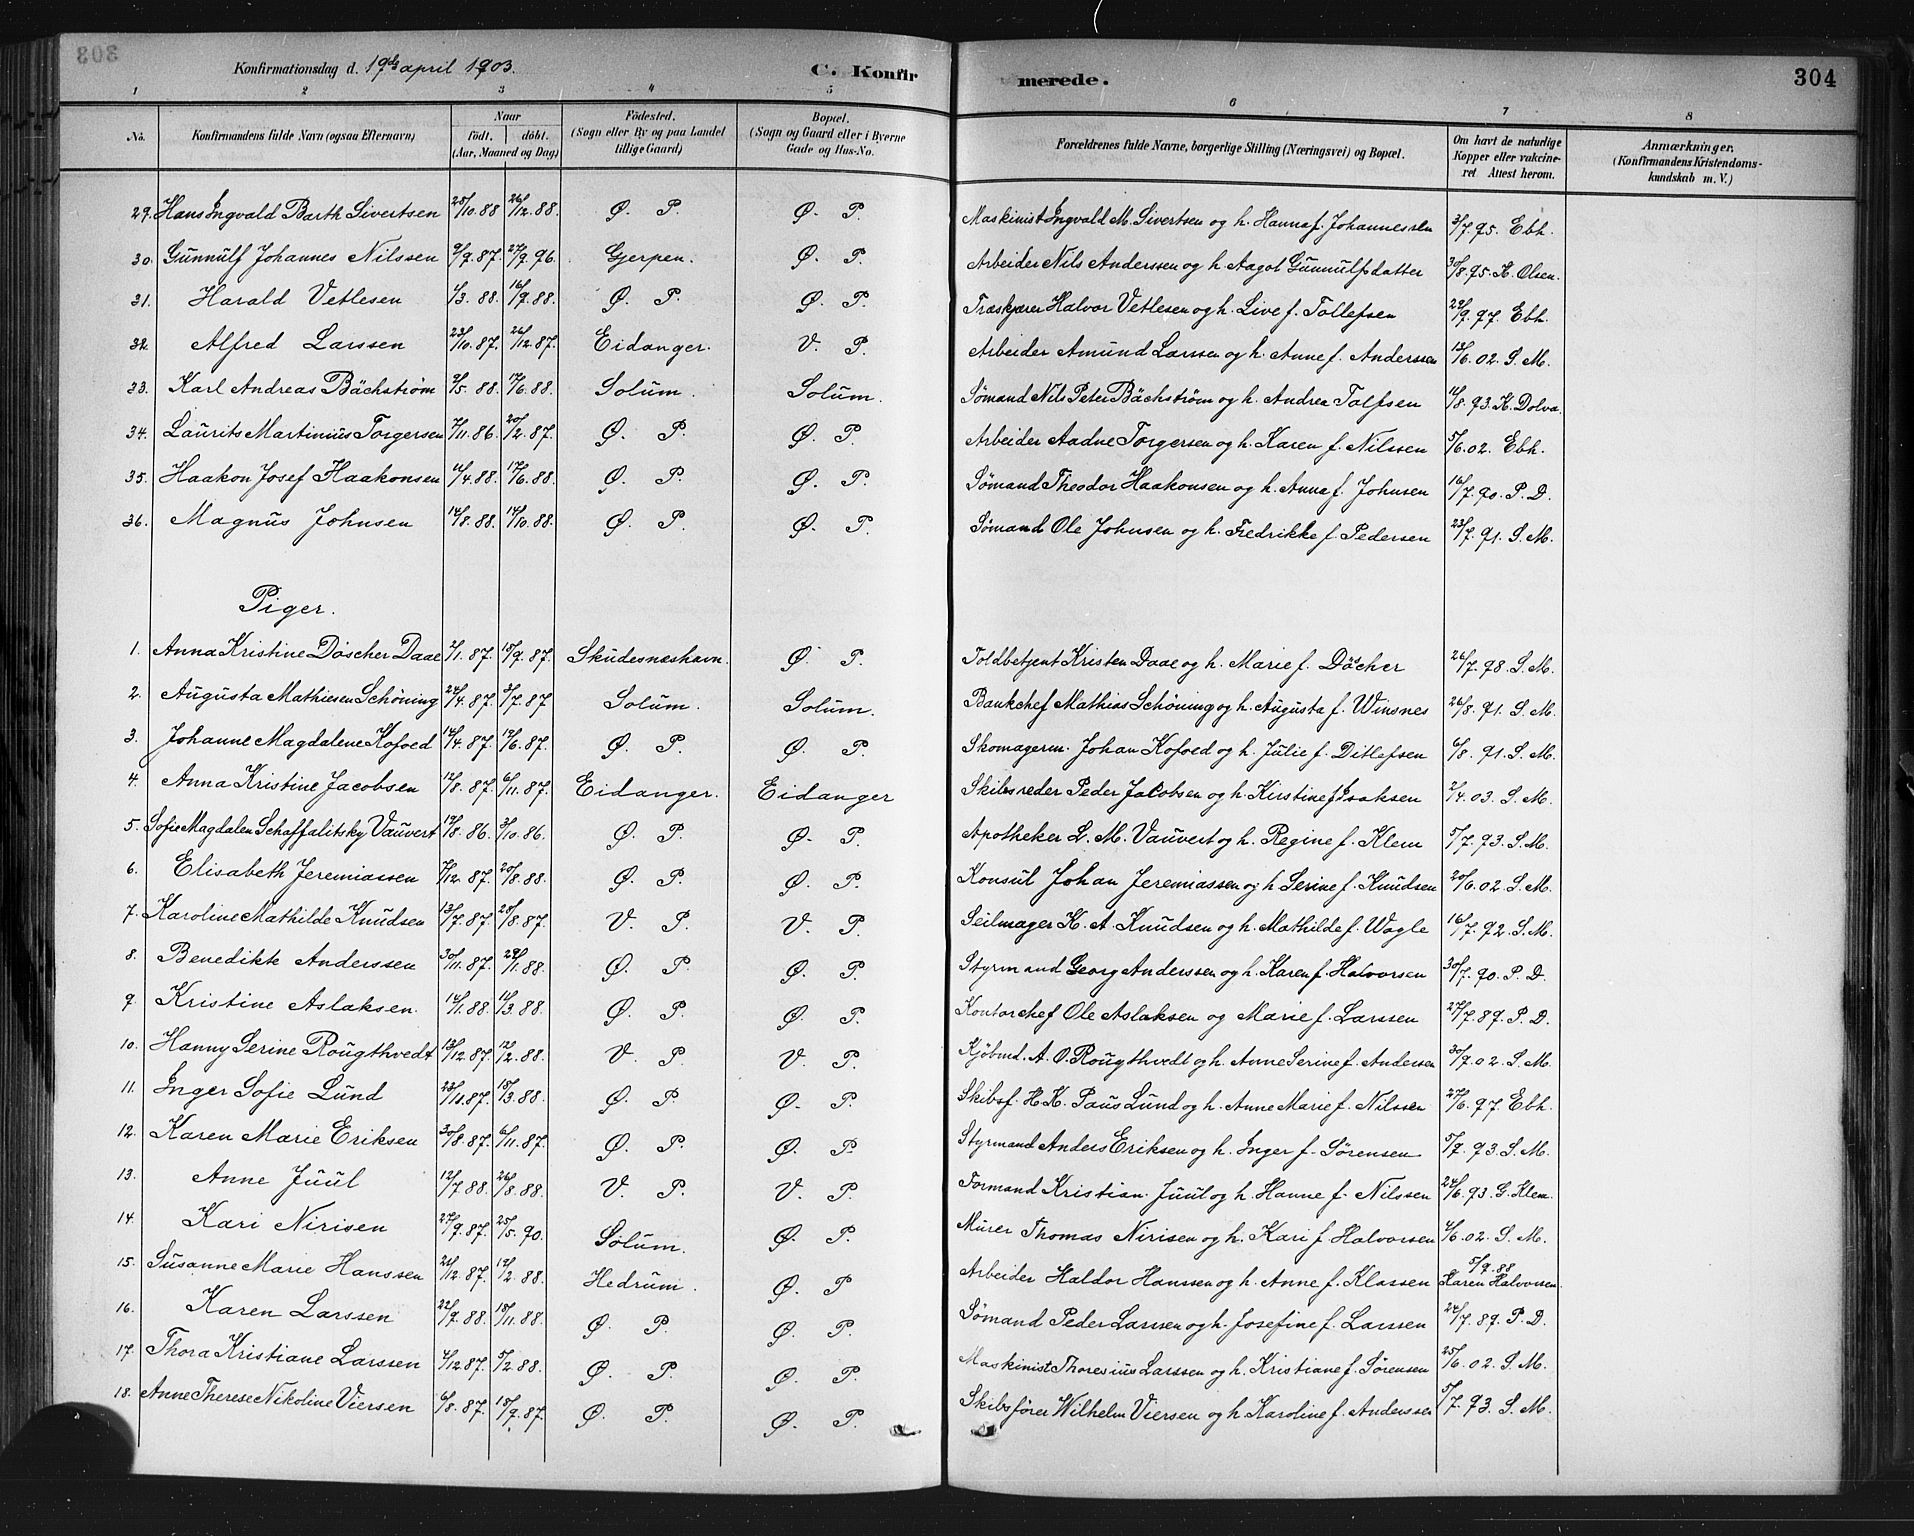 303
Konfirmationsdag d. 19de april 1903.
C. Konfirmerede.
304
1 2 3 4 5 6 7 8
No. Konfirmandens fulde Navn (ogsaa Efternavn) Naar födt. döbt. (Aar, Maaned og Dag) Födested. (Sogn eller By og paa Landet tillige Gaard) Bopæl. (Sogn og Gaard eller i Byerne Gade og Hus-No. Forældrenes fulde Navne, borgerlige Stilling (Næringsvei) og Bopæl. Om havt de naturlige Kopper eller vakcineret Attest herom. Anmærkninger. (Konfirmandens Kristendomskundskab m. V.)
29. Hans Ingvald Barth Sivertsen 28/10.88 26/12.88. Ø. P. Ø. P. Maskinist Ingvald M. Sivertsen og h. Hanna f. Johannessen 3/7.95. Ebh.
30. Gunnulf Johannes Nilssen 9/9.87. 27/9.96. Gjerpen. Ø. P. Arbeider Nils Anderssen og h. Aagot Gunnulfsdatter 30/8.95. K. Olsen.
31. Harald Vetlesen 1/3.88. 16/9.88. Ø. P. Ø. P. Træskjærer Halvor Vetlesen og h. Live f. Tollefsen 29/9.97. Ebh.
32. Alfred Larssen 23/10.87. 26/12.87. Eidanger. V. P. Arbeider Amund Larssen og h. Anne f. Anderssen 13/6.02. S. M.
33. Karl Andreas Bächstrøm 9/5.88. 17/6.88. Solum. Solum. Sömand Nils Peter Bächstrøm og h. Andrea Tolfsen 16/8.93. K. Dolva.
34. Laurits Martinius Torgersen 7/11.86. 20/2.87. Ø. P. Ø. P. Arbeider Aadne Torgersen og h. Karen f. Nilssen 5/6.02. Ebh.
35. Haakon Josef Haakonsen 11/4.88. 17/6.88. Ø. P. Ø. P. Sömand Theodor Haakonsen og h. Anna f. Johnsen 16/7.90. P. D.
36. Magnus Johnsen 14/8.88. 14/10.88. Ø. P. Ø. P. Sömand Ole Johnsen og h. Fredrikke f. Pedersen 23/7.91. S. M.
Piger.
1. Anna Kristine Döscher Daae 2/1.87. 18/9.87. Skudesneshavn. Ø. P. Toldbetjent Kristen Daae og h. Marie f. Döcher 26/7.98. S. M.
2. Augusta Mathiesen Schöning 24/4.87. 3/7.87 Solum. Solum. Bankchef Mathias Schöning og h. Augusta f. Winsnes 26/8.91. S. M.
3. Johanne Magdalene Kofoed 14/4.87. 19/6.87. Ø. P. Ø. P. Skomagerm. Johan Kofoed og h. Julie f. Ditlefsen 6/8.91. S. M.
4. Anna Kristine Jacobsen 12/8.87. 6/11.87. Eidanger. Eidanger Skibsreder Peder Jacobsen og h. Kirstine f. Isaksen 2/4.03. S. M.
5. Sofie Magdalen Schaffalitsky Vauvert 19/8.86. 3/10.86. Ø. P. Ø. P. Apotheker L. M. Vauvert og h. Regine f. Klem 5/7.93. S. M.
6. Elisabeth Jeremiassen 7/12.87. 20/8.88. Ø. P. Ø. P. Konsul Johan Jeremiassen og h Serine f. Knudsen 20/6.02. S. M.
7. Karoline Mathilde Knudsen 13/7.87. 28/8.87. V. P. V. P. Seilmager K. A. Knudsen og h. Mathilde f. Wogle 16/7.92. S. M.
8. Benedikte Anderssen 30/11.87. 29/1.88. Ø. P. Ø. P. Styrmand Georg Anderssen og h. Karen f. Halvorsen 30/7.90. P. D.
9. Kristine Aslaksen. 14/1.88. 11/3.88. Ø. P. Ø. P. Kontorchef Ole Aslaksen og Marie f. Larssen 27/7.89. P. D.
10. Hanny Serine Rougthvedt 13/12.87. 12/2.88. V. P. V. P. Kjöbmd. A. O. Rougthvedt og h. Anne Serine f. Andersen 30/9.02. S. M.
11. Inger Sofie Lund 23/11.87. 18/3.88. Ø. P. Ø. P. Skibsf. H. K. Paus Lund og h. Anne Marie f. Nilssen 27/6.97. Ebh.
12. Karen Marie Eriksen 30/8.87. 6/11.87. Ø. P. Ø. P. Styrmand Anders Eriksen og h. Inger f. Sörensen 5/9.93. S. M.
13. Anne Juul 12/7.88. 26/8.88. V. P. V. P. Formand Kristian Juul og h. Hanne f. Nilssen 24/6.93. G. Klem.
14. Kari Nirisen 27/9.87. 25/5.90. Solum. Ø. P. Murer Thomas Nirisen og h. Kari f. Halvorsen 4/6.02. S. M.
15. Susanne Marie Hanssen 21/12.87. 19/2.88. Hedrum. Ø. P Arbeider Haldor Hanssen og h. Anne f. Klassen 5/9.88 Karen Halvorsen
16. Karen Larssen 22/9.88. 18/11.88. Ø. P. Ø. P. Sömand Peder Larssen og h. Josefine f. Larssen 24/7.89. P. D.
17. Thora Kristiane Larssen 4/12.87. 5/2.88. Ø. P. Ø. P. Maskinist Thoresius Larssen og h. Kristiane f. Sörensen 25/6.02. S. M.
18. Anne Therese Nikoline Viersen 6/8.87. 18/9.87. Ø. P. Ø. P. Skibsförer Wilhelm Viersen og h. Karoline f. Anderssen 5/7.93. S. M.